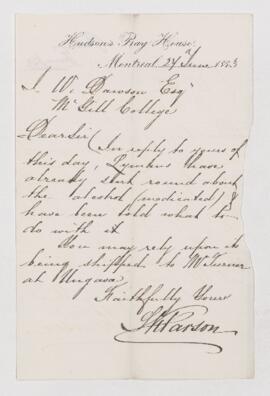 Hudson's Bay House
Montreal 27 June 1883
J. W. Dawson Esqr
McGill College
Dear Sir
In reply to yours of
this day, Lymans have
already sent round about
the alcohol (methylated) &
have been told what to
do with it
You may rely upon its
being shipped to Mr Turner
at Ungava.
Faithfully Yours
Parson